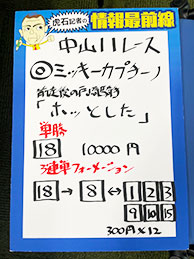 虎石記者の
情報最前線
中山11レース
◎ミッキーカプチーノ
「ホッとした」
単勝
18 10000円
3連単フォーメーション
18→8↔1 2 3
9 10 15
300円×12